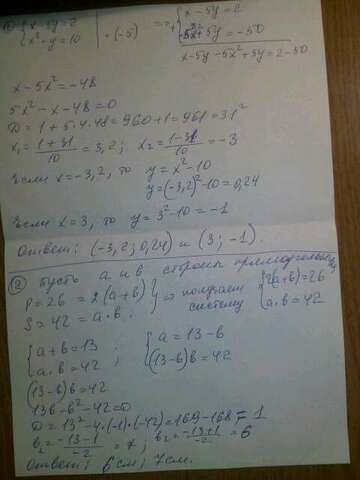 ① { x - 5y = 2
x² - y = 10 | · (-5) => + { x - 5y = 2
-5x² + 5y = -50
x - 5y - 5x² + 5y = 2 - 50
x - 5x² = -48
5x² - x - 48 = 0
D = 1 + 5·4·48 = 960 + 1 = 961 = 31²
x₁ = (1 + 31)/10 = 3,2; x₂ = (1 - 31)/10 = -3
Если x = -3,2, то y = x² - 10
y = (-3,2)² - 10 = 0,24
Если x = 3, то y = 3² - 10 = -1
Ответ: (-3,2; 0,24) и (3; -1).
② Пусть a и b стороны прямоугольника
P = 26 = 2(a + b)
S = 42 = a · b } => получаем систему { 2(a + b) = 26
a · b = 42
{ a + b = 13
a · b = 42 ; { a = 13 - b
(13 - b) b = 42
(13 - b) b = 42
13b - b² - 42 = 0
D = 13² - 4·(-1)·(-42) = 169 - 168 = 1
b₁ = (-13 - 1)/-2 = 7; b₂ = (-13 + 1)/-2 = 6
Ответ: 6 см; 7 см.